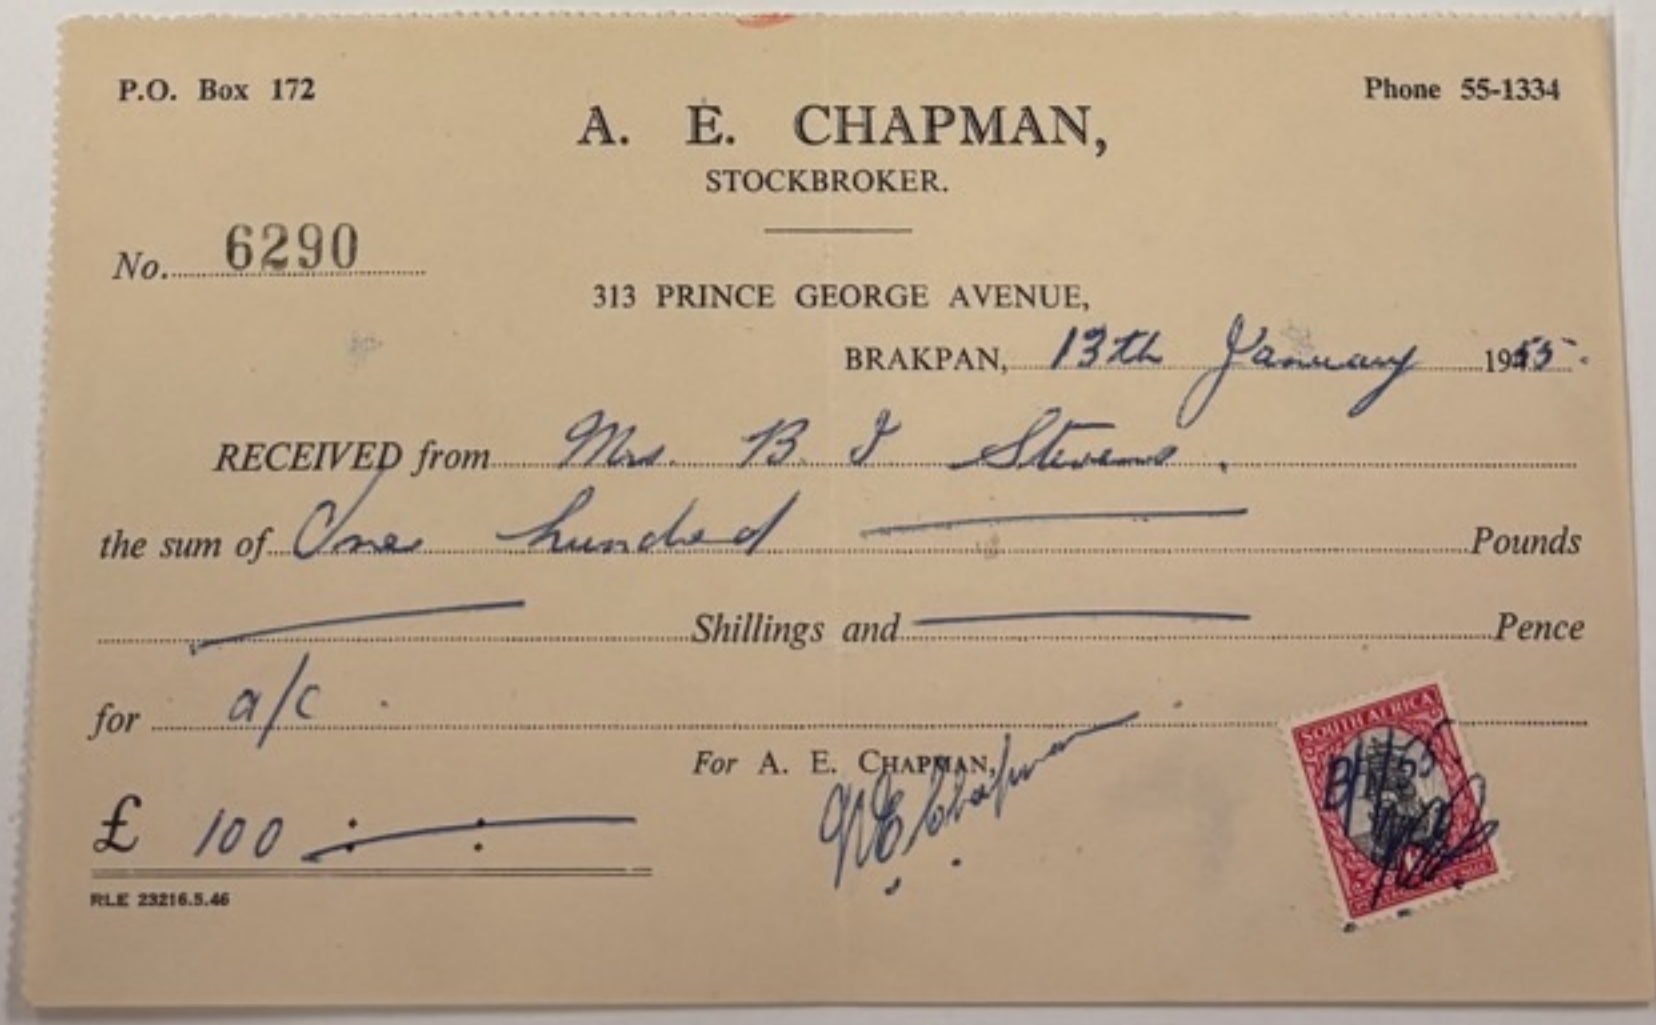 P.O. Box 172
Phone 55-1334
A. E. CHAPMAN,
STOCKBROKER.
No. 6290
313 PRINCE GEORGE AVENUE,
BRAKPAN, 13th January 1955.
RECEIVED from Mrs. B I Stevens.
the sum of One hundred Pounds
Shillings and Pence
for a/c.
For A. E. CHAPMAN,
£ 100 : :
Chapman
SOUTH AFRICA
RLE 23216.5.46